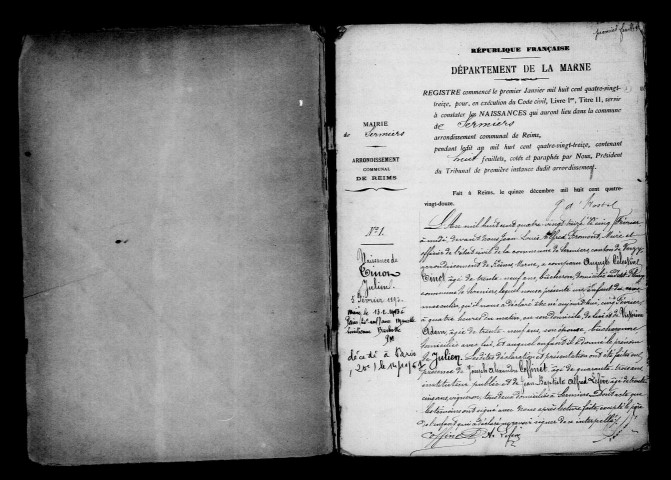 premier feuillet
RÉPUBLIQUE FRANÇAISE
DÉPARTEMENT DE LA MARNE
REGISTRE commencé le premier Janvier mil huit cent quatre-vingt-
treize, pour, en exécution du Code civil, Livre Ier, Titre II, servir
à constater les NAISSANCES qui auront lieu dans la commune
de Sermiers
arrondissement communal de Reims,
pendant ledit an mil huit cent quatre-vingt-treize, contenant
huit feuillets, cotés et paraphés par Nous, Président
du Tribunal de première instance dudit arrondissement.
Fait à Reims, le quinze décembre mil huit cent quatre-
vingt-douze.
MAIRIE
de Sermiers
ARRONDISSEMENT
COMMUNAL
DE REIMS
No 1.
Naissance de
Julien
5 février 1893
décédé à Paris
L'An mil huit cent quatre-vingt-treize le cinq février
à midi devant nous Jean Louis Alfred Maire et
officier de l'état civil de la commune de Sermiers canton de
arrondissement de Reims, Marne, a comparu Auguste Célestin
âgé de trente-neuf ans, bûcheron, domicilié
commune de Sermiers, lequel nous a présenté un enfant du sexe
masculin, qu'il nous a déclaré être né aujourd'hui, cinq février,
à quatre heures du matin, en son domicile, de lui et de
Adam, âgée de trente-neuf ans, son épouse,
domiciliée avec lui, et auquel enfant il a donné le prénom
de Julien. Lesdites déclaration et présentation ont été faites en
présence de Joseph Alexandre Coffinet, âgé de quarante-
instituteur public, et de Jean Baptiste Alfred Lefèvre âgé de trente-
cinq ans, vigneron, tous deux domiciliés à Sermiers. Duquel acte que
les témoins ont signé avec nous après lecture faite, excepté le père
de l'enfant qui a déclaré ne savoir signer de ce interpellé.
Coffinet A. Lefèvre